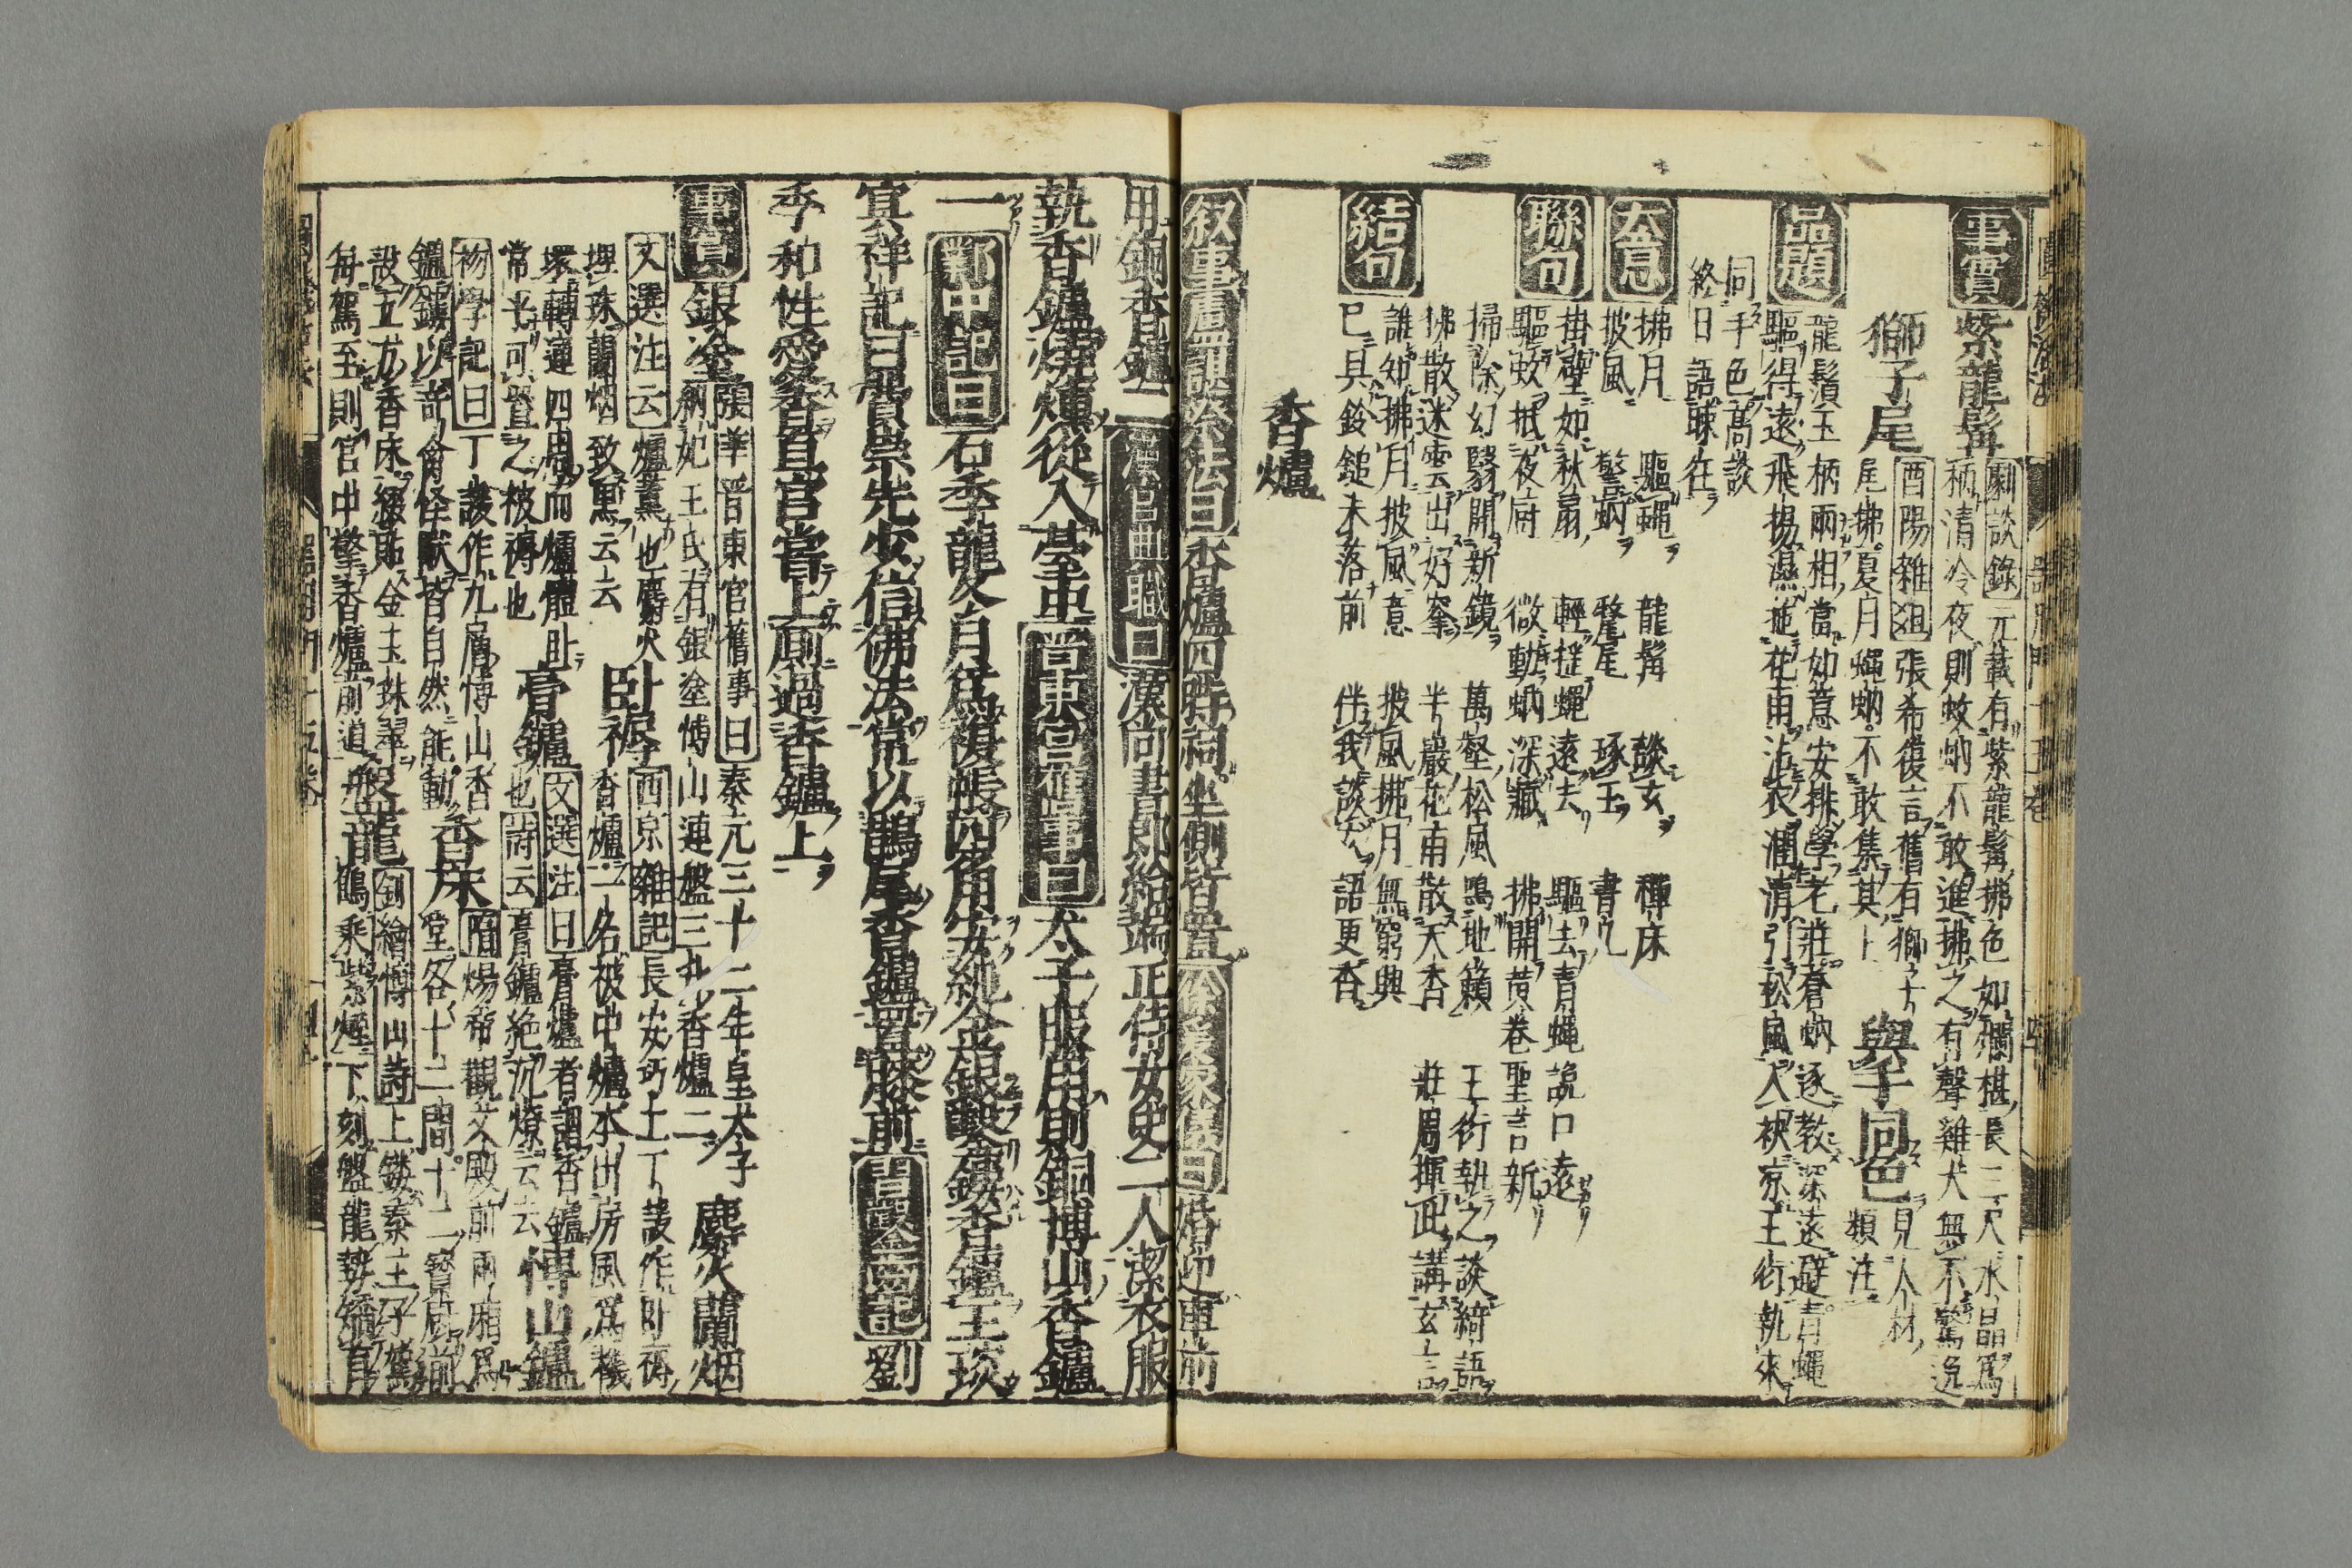 事實
紫龍髯
劇談錄 元載有紫龍髯拂色如爛椹長三尺水晶爲
柄清冷夜則蚊蚋不敢進拂之有聲雞犬無不驚逸
獅子尾
酉陽雜俎 張希復言舊有獅子
尾拂夏月蠅蚋不敢集其上
與手同色
見人材
類注
品題
龍鬚玉柄兩相當如意安排學老莊蒼蚋逐教深遠避青蠅
驅得遠飛揚濕拖花雨沾衣潤清引松風入袂凉王衍執來
同手色高談
終日語昧在
大意
拂月 驅蠅 龍髯 談玄 禪床
披風 驚蚋 麈尾 琢玉 書几
聯句
掛壁如秋扇 輕揮蠅遠去 驅去青蠅讒口遠
驅蚊抵夜廚 微動蚋深藏 拂開黄卷聖言新
掃除幻翳開新鏡 萬壑松風鳴地籟 王衍執之談綺語
拂散迷雲出好峯 半巖花雨散天香 莊周揮此講玄言
結句
誰知拂月披風意 披風拂月無窮興
已具鈴鎚未落前 伴我談玄語更香
香爐
叙事盧諶祭法曰 香爐四時祠坐側皆置 徐爰家儀曰 婚迎車前
用銅香鑪二 漢官典職曰 漢尚書郎給端正侍女史二人潔衣服
執香鑪燒燻從入臺中 晉東宮舊事曰 太子服用則銅博山香鑪
一 鄴中記曰 石季龍冬月爲複帳四角安純金銀鑿鏤香鑪王琰
冥祥記曰費崇先少信佛法常以鵲尾香鑪置膝前 劉
季和性愛香自官嘗上廁過香鑪上
事實
銀塗
張華晉東宮舊事曰 泰元三十二年皇太子
納妃王氏有銀塗博山連盤三升香爐二
麝火蘭烟
文選注云 爐薰也麝火
埋珠蘭烟致黑云云
卧褥
西京雜記 長安巧工丁諼作卧褥
香爐一名被中爐本出房風爲機
環轉運四周而爐體
常平可置之被褥也
膏鑪
文選注曰 膏爐者謂香鑪
也 詩云 膏鑪絶沉燎云云
博山鑪
物學記曰 丁諼作九層博山香
鑪鏤以奇禽怪獸皆自然能動
香床
隋煬帝觀文殿前兩廂爲
堂各十二間十二寶廚前
設五方香床綴貼金玉珠翠
每駕至則宮中擎香爐前道
盤龍
劉繪博山詩 上鏤秦王子駕
鶴乘紫烟下刻盤龍勢矯有